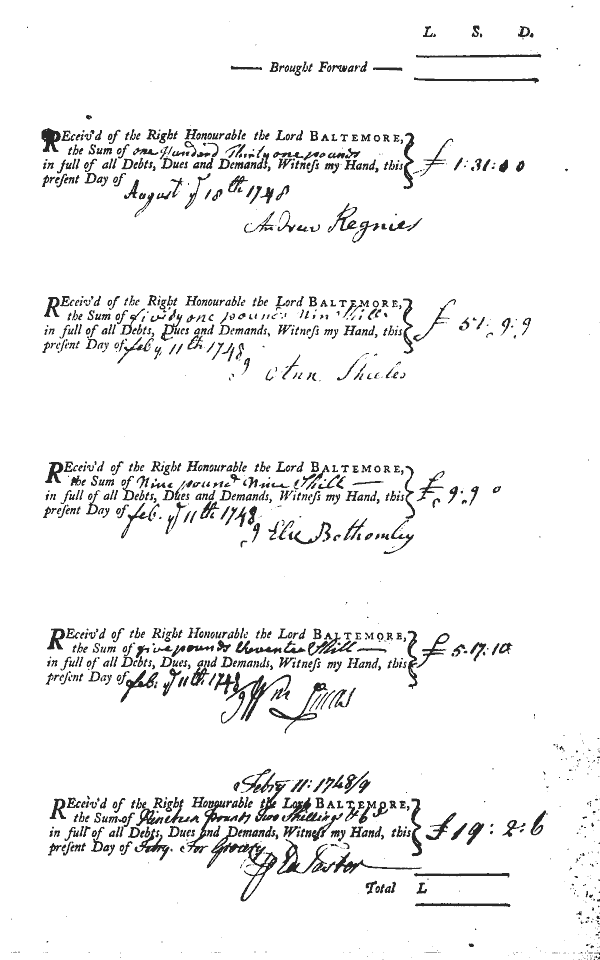 L. S. D.
Brought Forward
REceiv'd of the Right Honourable the Lord BALTEMORE,
the Sum of one Hundred Thirty one pounds
in full of all Debts, Dues and Demands, Witneſs my Hand, this
preſent Day of August ye 18th 1748
£ 1:31:00
Andrew Regnier
REceiv'd of the Right Honourable the Lord BALTEMORE,
the Sum of fivdy one pounds Nin Shill
in full of all Debts, Dues and Demands, Witneſs my Hand, this
preſent Day of feb. ye 11th 1748
£ 51:9:9
9 Ann
REceiv'd of the Right Honourable the Lord BALTEMORE,
the Sum of Nine pound Nine Shill
in full of all Debts, Dues and Demands, Witneſs my Hand, this
preſent Day of feb. ye 11th 1748
£ 9:9 0
9 Eliz Bothomley
REceiv'd of the Right Honourable the Lord BALTEMORE,
the Sum of five pounds Seventee Shill
in full of all Debts, Dues and Demands, Witneſs my Hand, this
preſent Day of feb. ye 11th 1748
£ 5:17:10
9 Wm Lucas
Febry 11: 1748/9
REceiv'd of the Right Honourable the Lord BALTEMORE,
the Sum of Nineteen pounds two Shillings & 6d
in full of all Debts, Dues and Demands, Witneſs my Hand, this
preſent Day of Febry. For Grocery
£ 19:2:6
Pastor
Total L